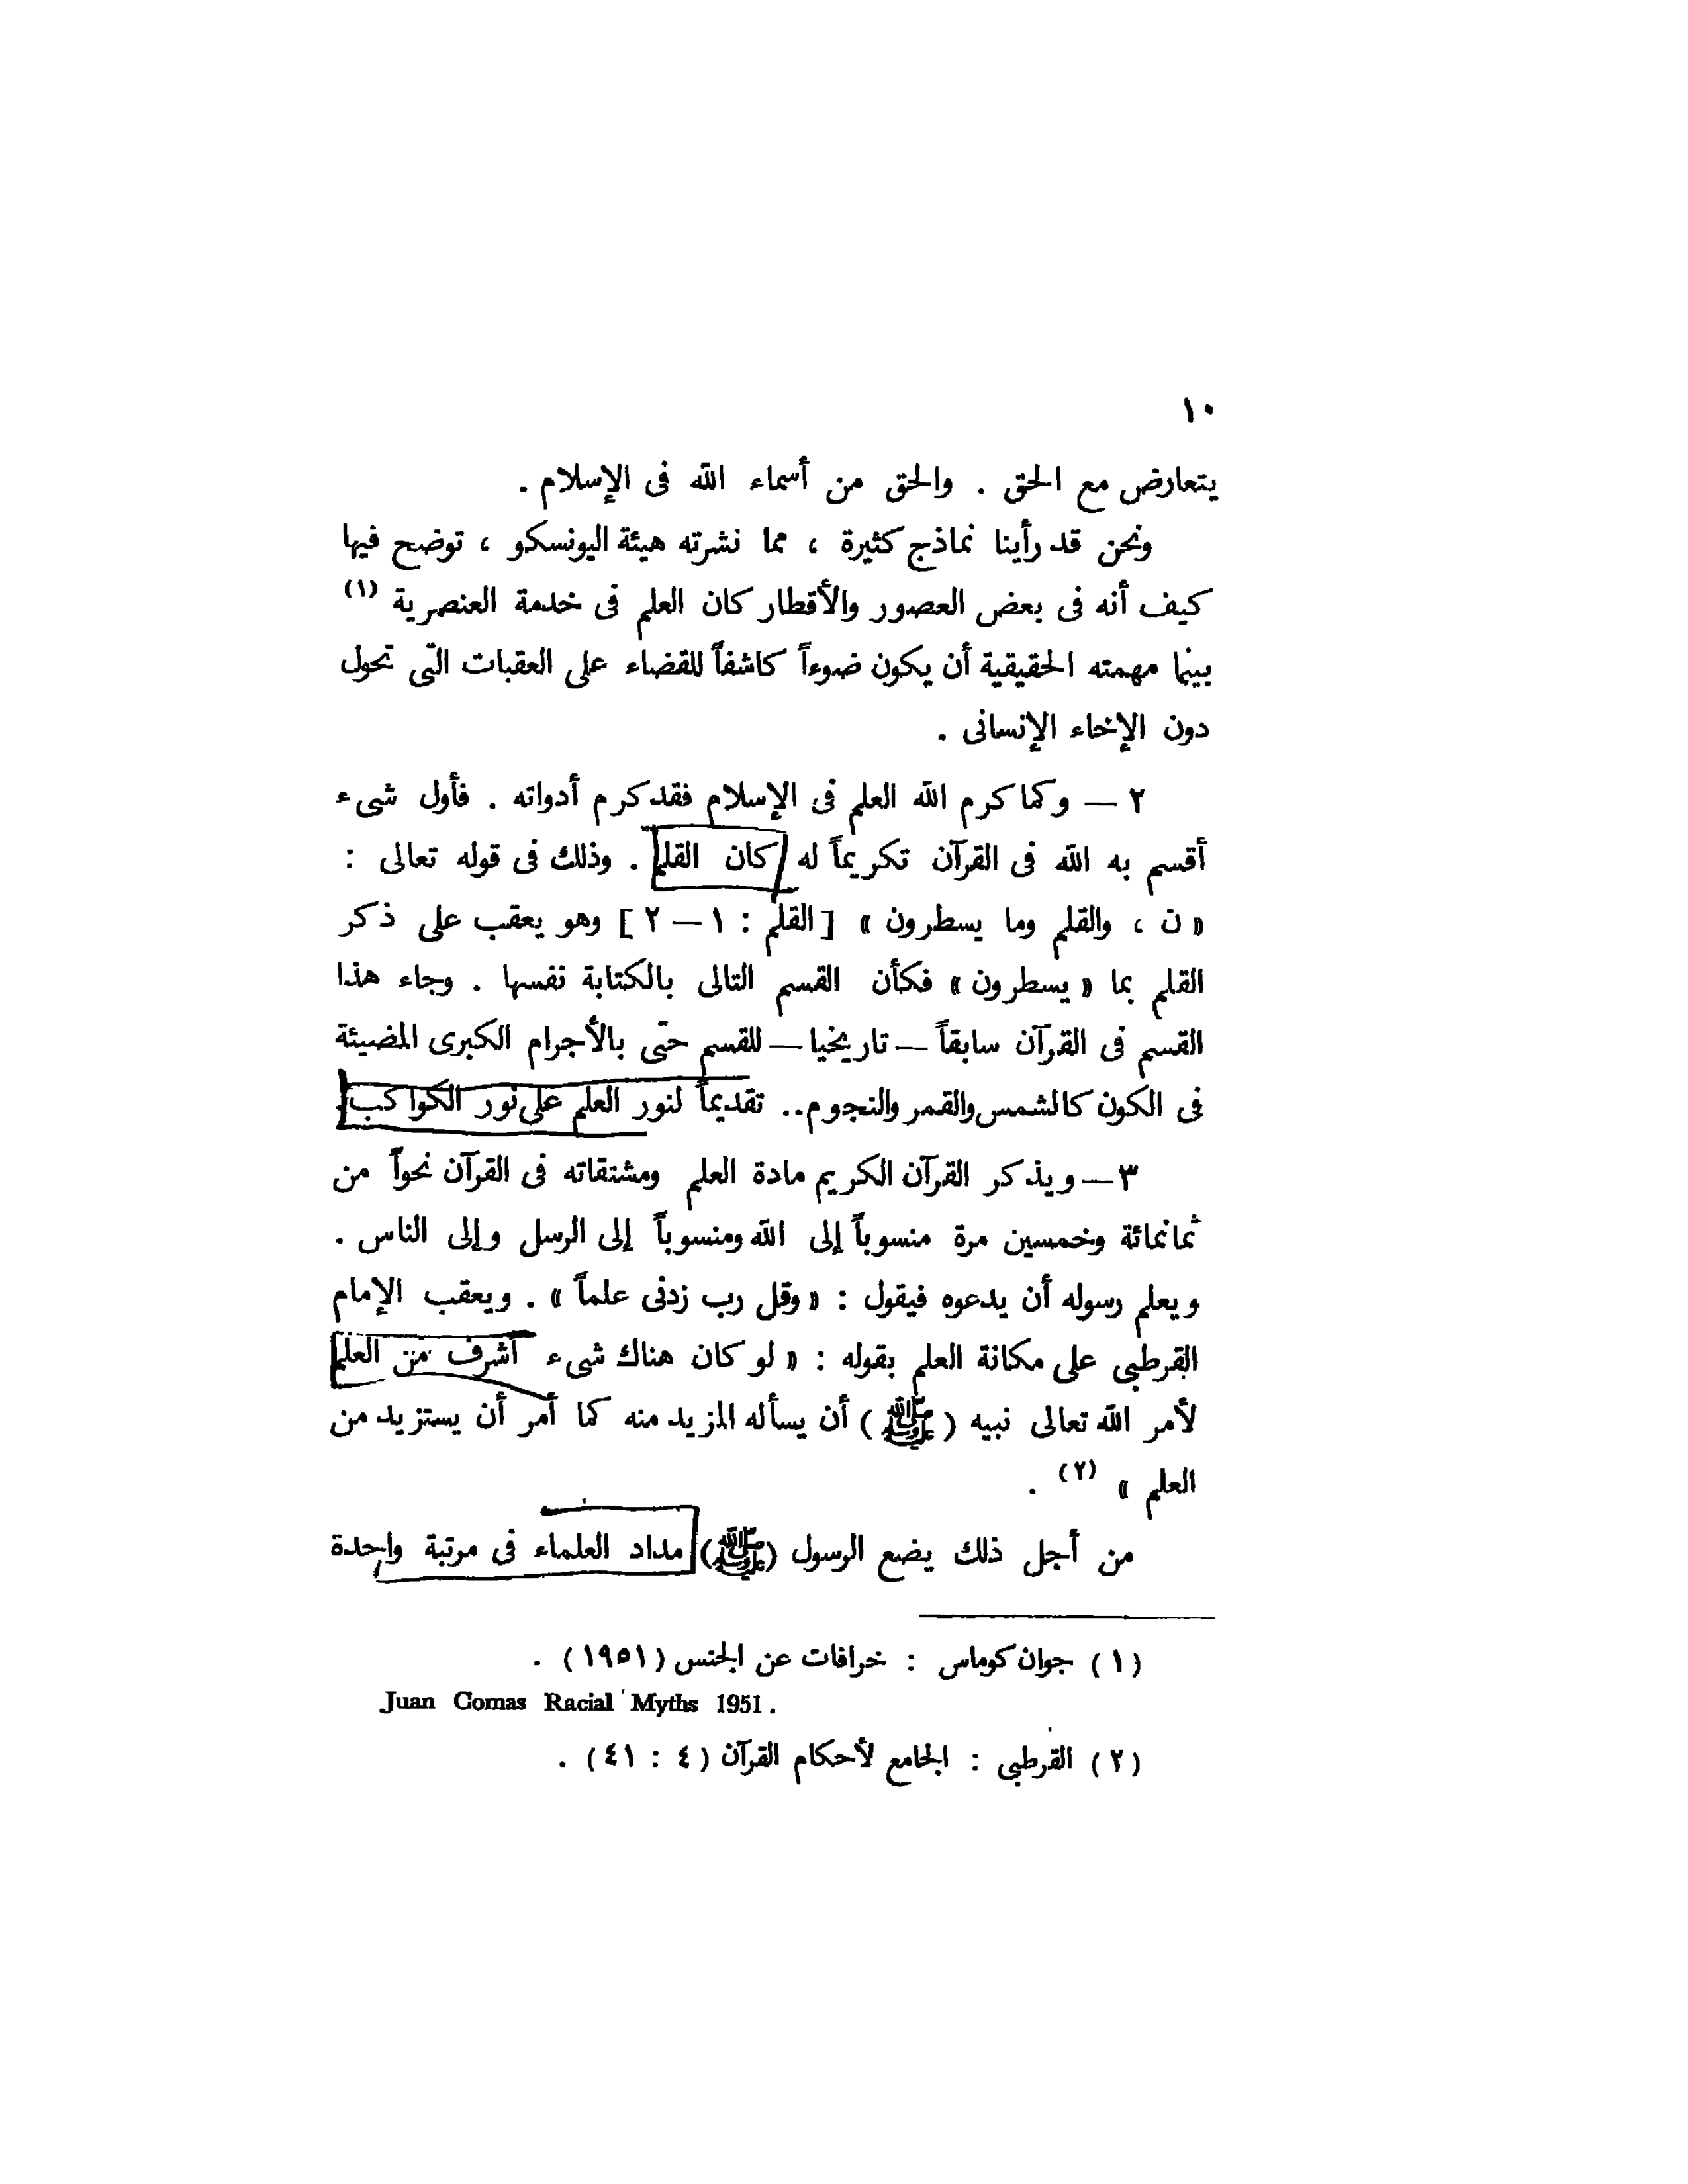 ١٠
يتعارض مع الحق . والحق من أسماء الله فى الإسلام .
ونحن قد رأينا نماذج كثيرة ، مما نشرته هيئة اليونسكو ، توضح فيها
كيف أنه فى بعض العصور والأقطار كان العلم فى خدمة العنصرية (١)
بينما مهمته الحقيقية أن يكون ضوءاً كاشفاً للقضاء على العقبات التى تحول
دون الإخاء الإنسانى .
٢ — وكما كرم الله العلم فى الإسلام فقد كرم أدواته . فأول شىء
أقسم به الله فى القرآن تكريماً له كان القلم . وذلك فى قوله تعالى :
« ن ، والقلم وما يسطرون » [ القلم : ١ — ٢ ] وهو يعقب على ذكر
القلم بما « يسطرون » فكأن القسم التالى بالكتابة نفسها . وجاء هذا
القسم فى القرآن سابقاً — تاريخيا — للقسم حتى بالأجرام الكبرى المضيئة
فى الكون كالشمس والقمر والنجوم .. تقديماً لنور العلم على نور الكواكب .
٣ — ويذكر القرآن الكريم مادة العلم ومشتقاته فى القرآن نحواً من
ثمانمائة وخمسين مرة منسوباً إلى الله ومنسوباً إلى الرسل وإلى الناس .
ويعلم رسوله أن يدعوه فيقول : « وقل رب زدنى علماً » . ويعقب الإمام
القرطبى على مكانة العلم بقوله : « لو كان هناك شىء أشرف من العلم
لأمر الله تعالى نبيه ( ﷺ ) أن يسأله المزيد منه كما أمر أن يستزيد من
العلم » (٢) .
من أجل ذلك يضع الرسول (ﷺ) مداد العلماء فى مرتبة واحدة
(١) جوان كوماس : خرافات عن الجنس (١٩٥١) .
Juan Comas Racial Myths 1951.
(٢) القرطبى : الجامع لأحكام القرآن (٤ : ٤١) .